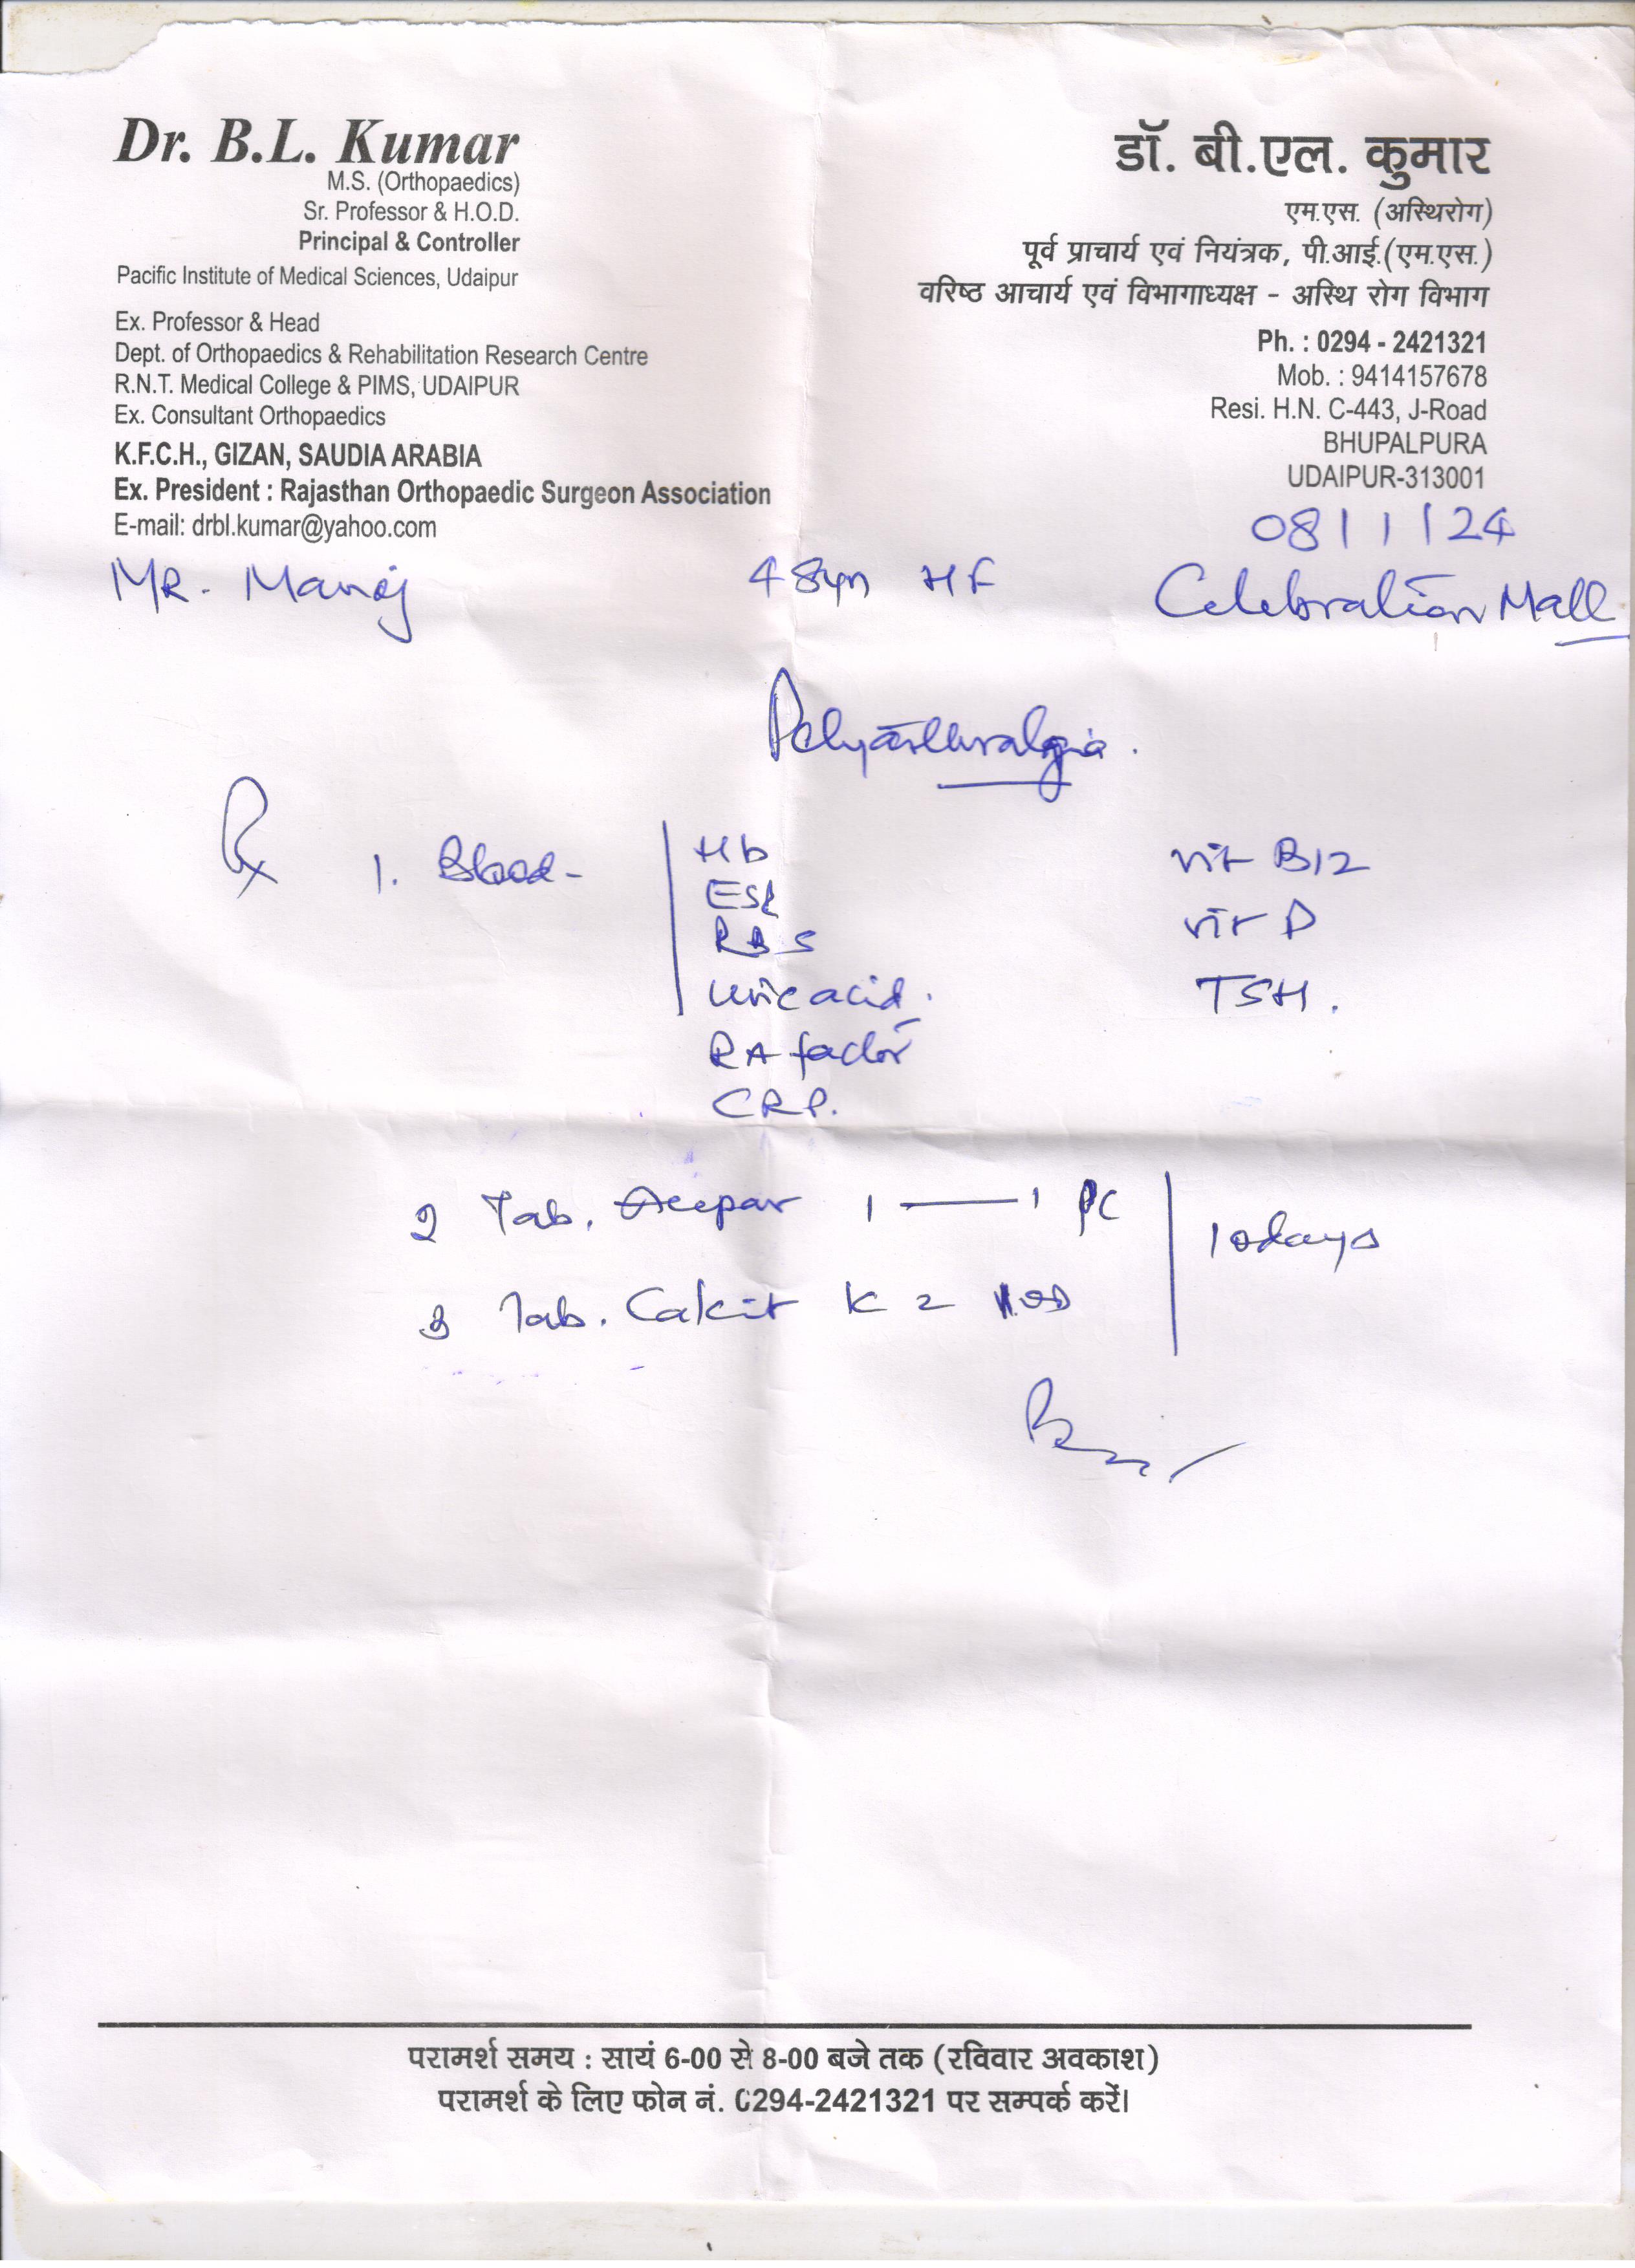 Dr. B.L. Kumar
M.S. (Orthopaedics)
Sr. Professor & H.O.D.
Principal & Controller
Pacific Institute of Medical Sciences, Udaipur
Ex. Professor & Head
Dept. of Orthopaedics & Rehabilitation Research Centre
R.N.T. Medical College & PIMS, UDAIPUR
Ex. Consultant Orthopaedics
K.F.C.H., GIZAN, SAUDIA ARABIA
Ex. President : Rajasthan Orthopaedic Surgeon Association
E-mail: drbl.kumar@yahoo.com
डॉ. बी.एल. कुमार
एम.एस. (अस्थिरोग)
पूर्व प्राचार्य एवं नियंत्रक, पी.आई.(एम.एस.)
वरिष्ठ आचार्य एवं विभागाध्यक्ष - अस्थि रोग विभाग
Ph. : 0294 - 2421321
Mob. : 9414157678
Resi. H.N. C-443, J-Road
BHUPALPURA
UDAIPUR-313001
08/1/24
MR. Manoj 48yr HF Celebration Mall
Polyarthralgia.
Rx 1. Blood - Hb Vit B12
ESR Vit D
RBS
Uric acid. TSH.
RA factor
CRP.
2 Tab. 1 — 1 PC 10days
3 Tab. Calcit K 2 OD
परामर्श समय : सायं 6-00 से 8-00 बजे तक (रविवार अवकाश)
परामर्श के लिए फोन नं. 0294-2421321 पर सम्पर्क करें।